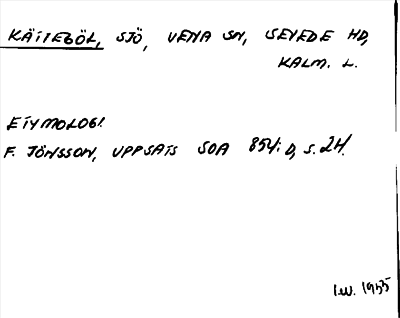 KÄTTEBÖL, SJÖ, VENA SN, SEVEDE HD,
KALM. L.
ETYMOLOGI.
F. JÖNSSON, UPPSATS SOA 854:D, S. 24.
I.W. 1935